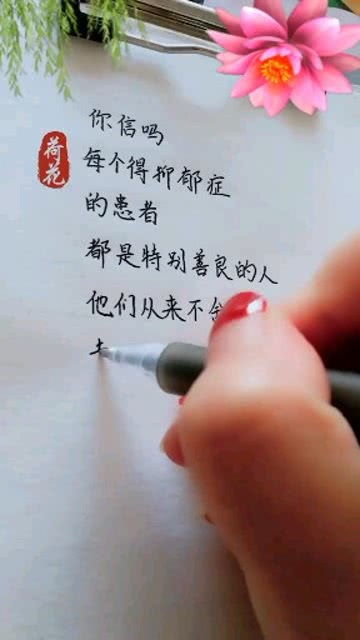 荷花
你信吗
每个得抑郁症
的患者
都是特别善良的人
他们从来不